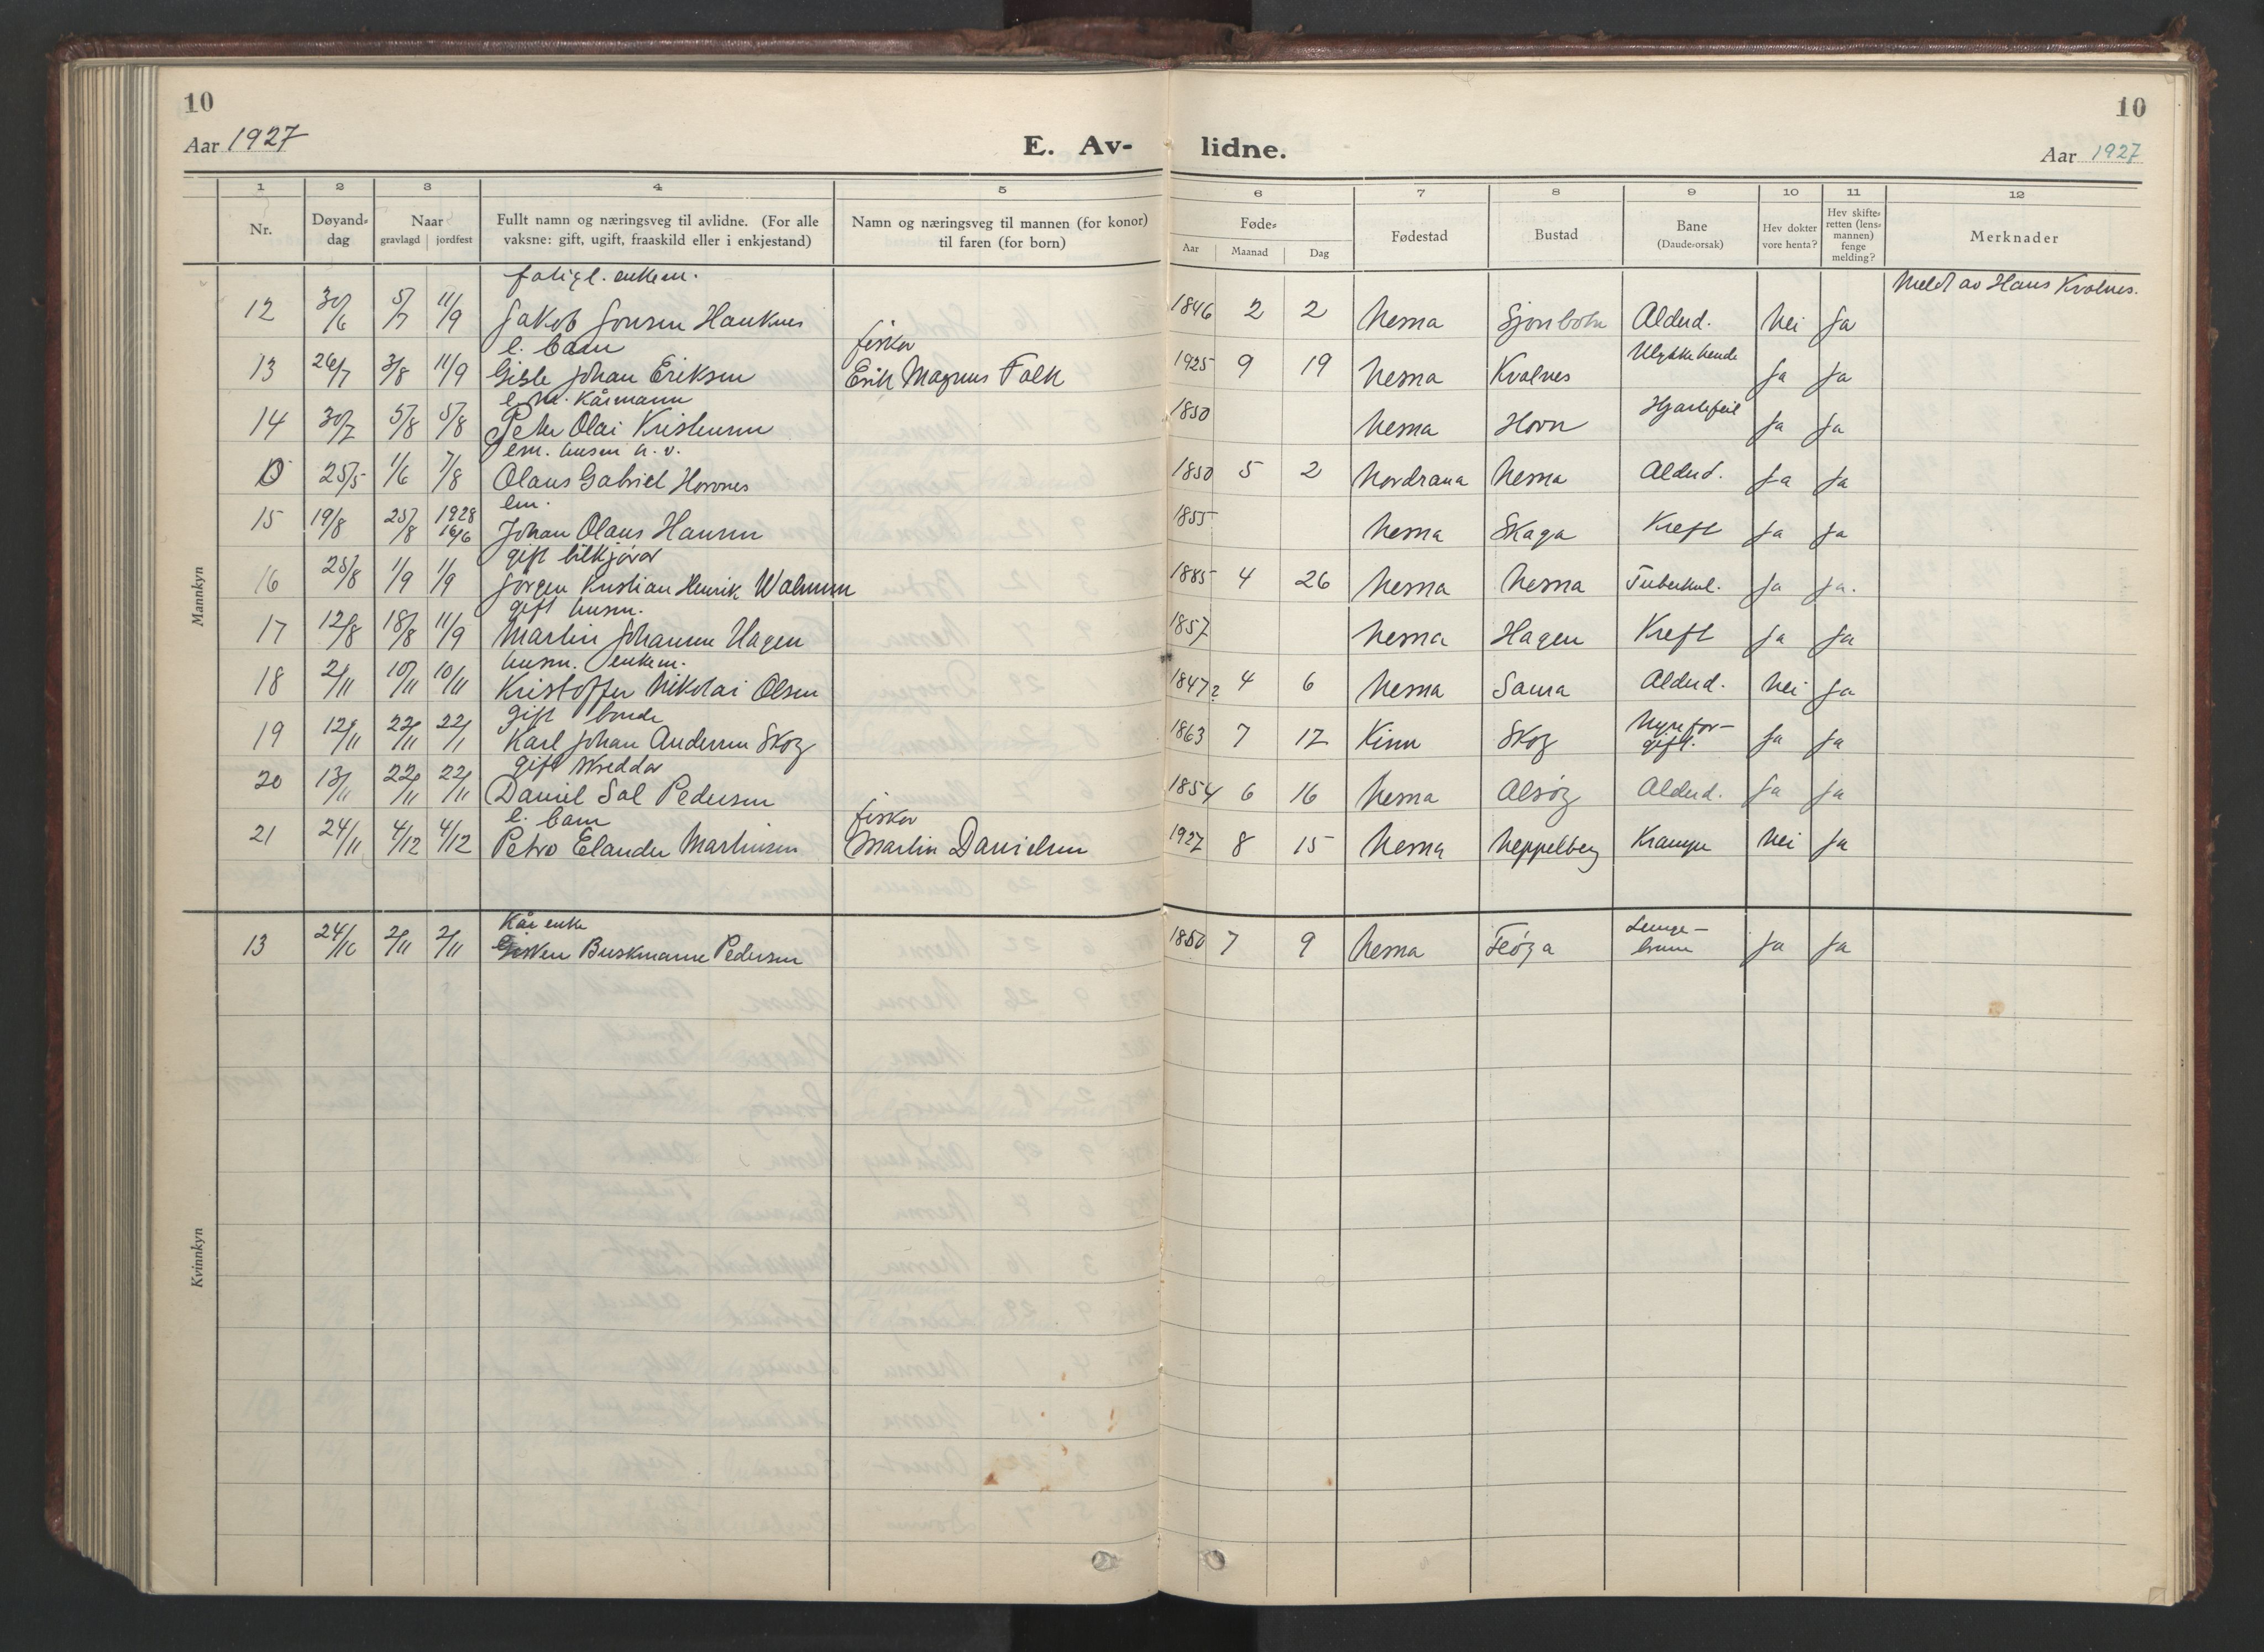 10
10
Aar 1927
E. Av-
lidne.
Aar 1927
1 2 3 4 5 6 7 8 9 10 11 12
Nr.
Døyand-
dag
Naar
gravlagd jordfest
Fullt namn og næringsveg til avlidne. (For alle
vaksne: gift, ugift, fraaskild eller i enkjestand)
Namn og næringsveg til mannen (for konor)
til faren (for born)
Føde-
Aar Maanad Dag
Fødestad
Bustad
Bane
(Daude-orsak)
Hev dokter
vore henta?
Hev skifte-
retten (lens-
mannen)
fenge
melding?
Merknader
Mannkyn
fatigl. enkem. Meld av Hans Kvalnes.
12 30/6 5/7 11/9 Jakob Jonsen Hauknes 1846 2 2 Nesna Sjonbotn Alderd. Nei Ja
e. barn fisker
13 26/7 3/8 11/9 Gisle Johan Eriksen Erik Magnus Falk 1925 9 19 Nesna Kvalnes Ulykkehende Ja Ja
e.m. Kårmann
14 30/7 5/8 5/8 Peter Olai Kristensen 1850 Nesna Horn Hjartefeil Ja Ja
em. husm
25/5 1/6 7/8 Olaus Gabriel 1850 5 2 Nordrana Nesna Alderd. Ja Ja
em.
15 19/8 25/8 1928 16/6 Johan Olaus Hansen 1855 Nesna Skaga Kreft Ja Ja
gift bilkjörar
16 25/8 1/9 1/9 Jörgen Kristian Henrik Walnum 1885 4 26 Nesna Nesna Tuberkul. Ja Ja.
gift husm.
17 12/8 18/8 11/9 Martin Johannes Hagen 1857 Nesna Hagen Kreft Ja Ja
husm. enkem.
18 2/11 10/11 10/11 Kristoffer Nikolai Olsen 1847? 4 6 Nesna Saura Alderd. Nei Ja
gift bonde
19 12/11 22/11 22/1 Karl Johan Andersen Skog 1863 7 17 Kinn Skog Nyrefor-
gift. Ja Ja
gift skreddar
20 13/11 22/11 22/11 Daniel Sal Pedersen 1854 6 16 Nesna Alsög Alderd. Ja Ja
e. barn fisker
21 24/11 4/12 4/12 Petro Elander Martinsen Martin Danielsen 1927 8 15 Nesna Neppelberg Krampe Nei Ja
Kvinnkyn
Kår enke
13 24/10 2/11 2/11 Pedersen 1850 7 9 Nesna Feöga Lunge-
brann Ja Ja